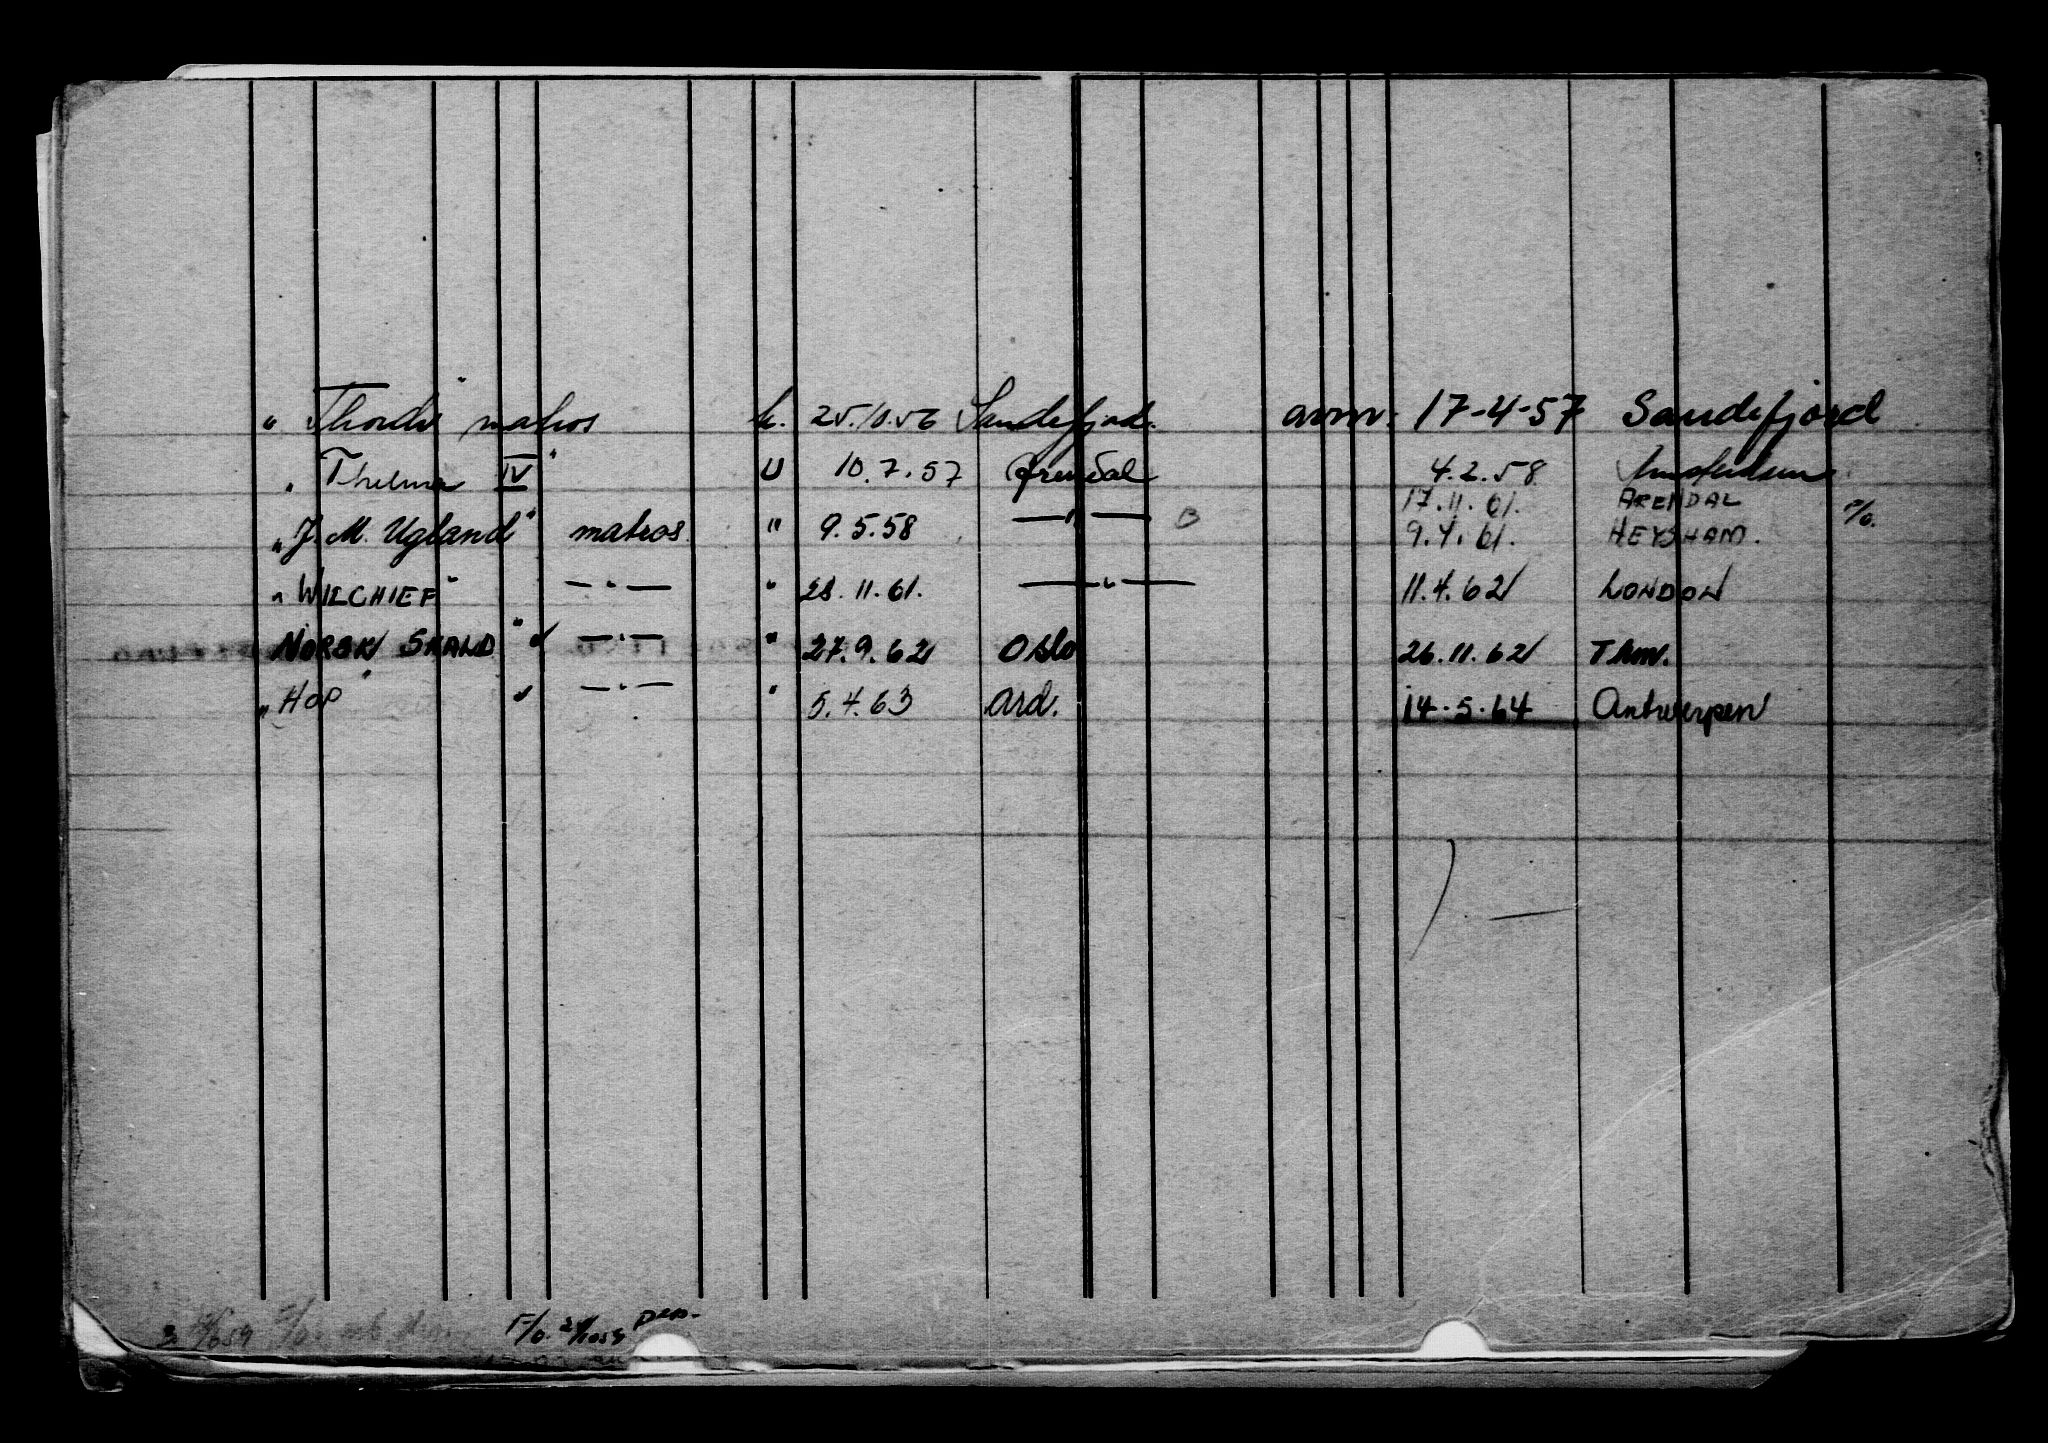 " Thordr " matros h. 25.10.56 Sandefjord. avm. 17-4-57 Sandefjord
" Thelma IV " U 10.7.57 Arendal 4.2.58 Amsterdam
17.11.61. ARENDAL
" J. M. Ugland " matros. " 9.5.58 — " — B 9.4.61. HEYSHAM. F/o.
" WILCHIEF " — " — " 28.11.61. — " — 11.4.62 LONDON
NORSK SKALD " — " — " 27.9.62 Oslo 26.11.62 Thm.
" HOP " — " — " 5.4.63 Ard. 14.5.64 Antwerpen
F/o.